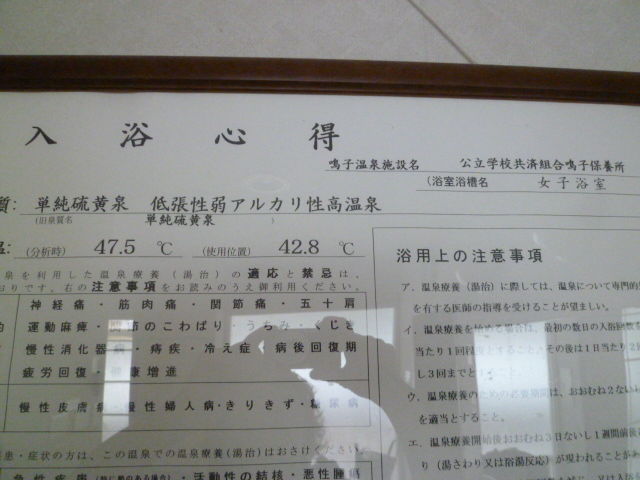 入浴心得
鳴子温泉施設名 公立学校共済組合鳴子保養所
(浴室浴槽名 女子浴室
質: 単純硫黄泉 低張性弱アルカリ性高温泉
(旧泉質名 単純硫黄泉 )
(分析時) 47.5 ℃ (使用位置) 42.8 ℃
泉を利用した温泉療養(湯治)の適応と禁忌は、
おりです。右の注意事項をお読みのうえ御利用ください。
神経痛・筋肉痛・関節痛・五十肩
運動麻痺・関節のこわばり・うちみ・くじき
慢性消化器病・痔疾・冷え症・病後回復期
疲労回復・健康増進
慢性皮膚病・慢性婦人病・きりきず・糖尿病
疾患・症状の方は、この温泉での温泉療養(湯治)はおさけください。
急性疾患(特に熱のある場合)・活動性の結核・悪性腫瘍
浴用上の注意事項
ア. 温泉療養(湯治)に際しては、温泉について専門的
を有する医師の指導を受けることが望ましい。
イ. 温泉療養を始める場合は、最初の数日の入浴回数
当たり1回程度とすること。その後は1日当たり2
し3回までと
ウ. 温泉療養のための必要期間は、おおむね2ない
を適当とすること。
エ. 温泉療養開始後おおむね3日ないし1週間前後
り(湯さわり又は浴湯反応)が現われることがあ